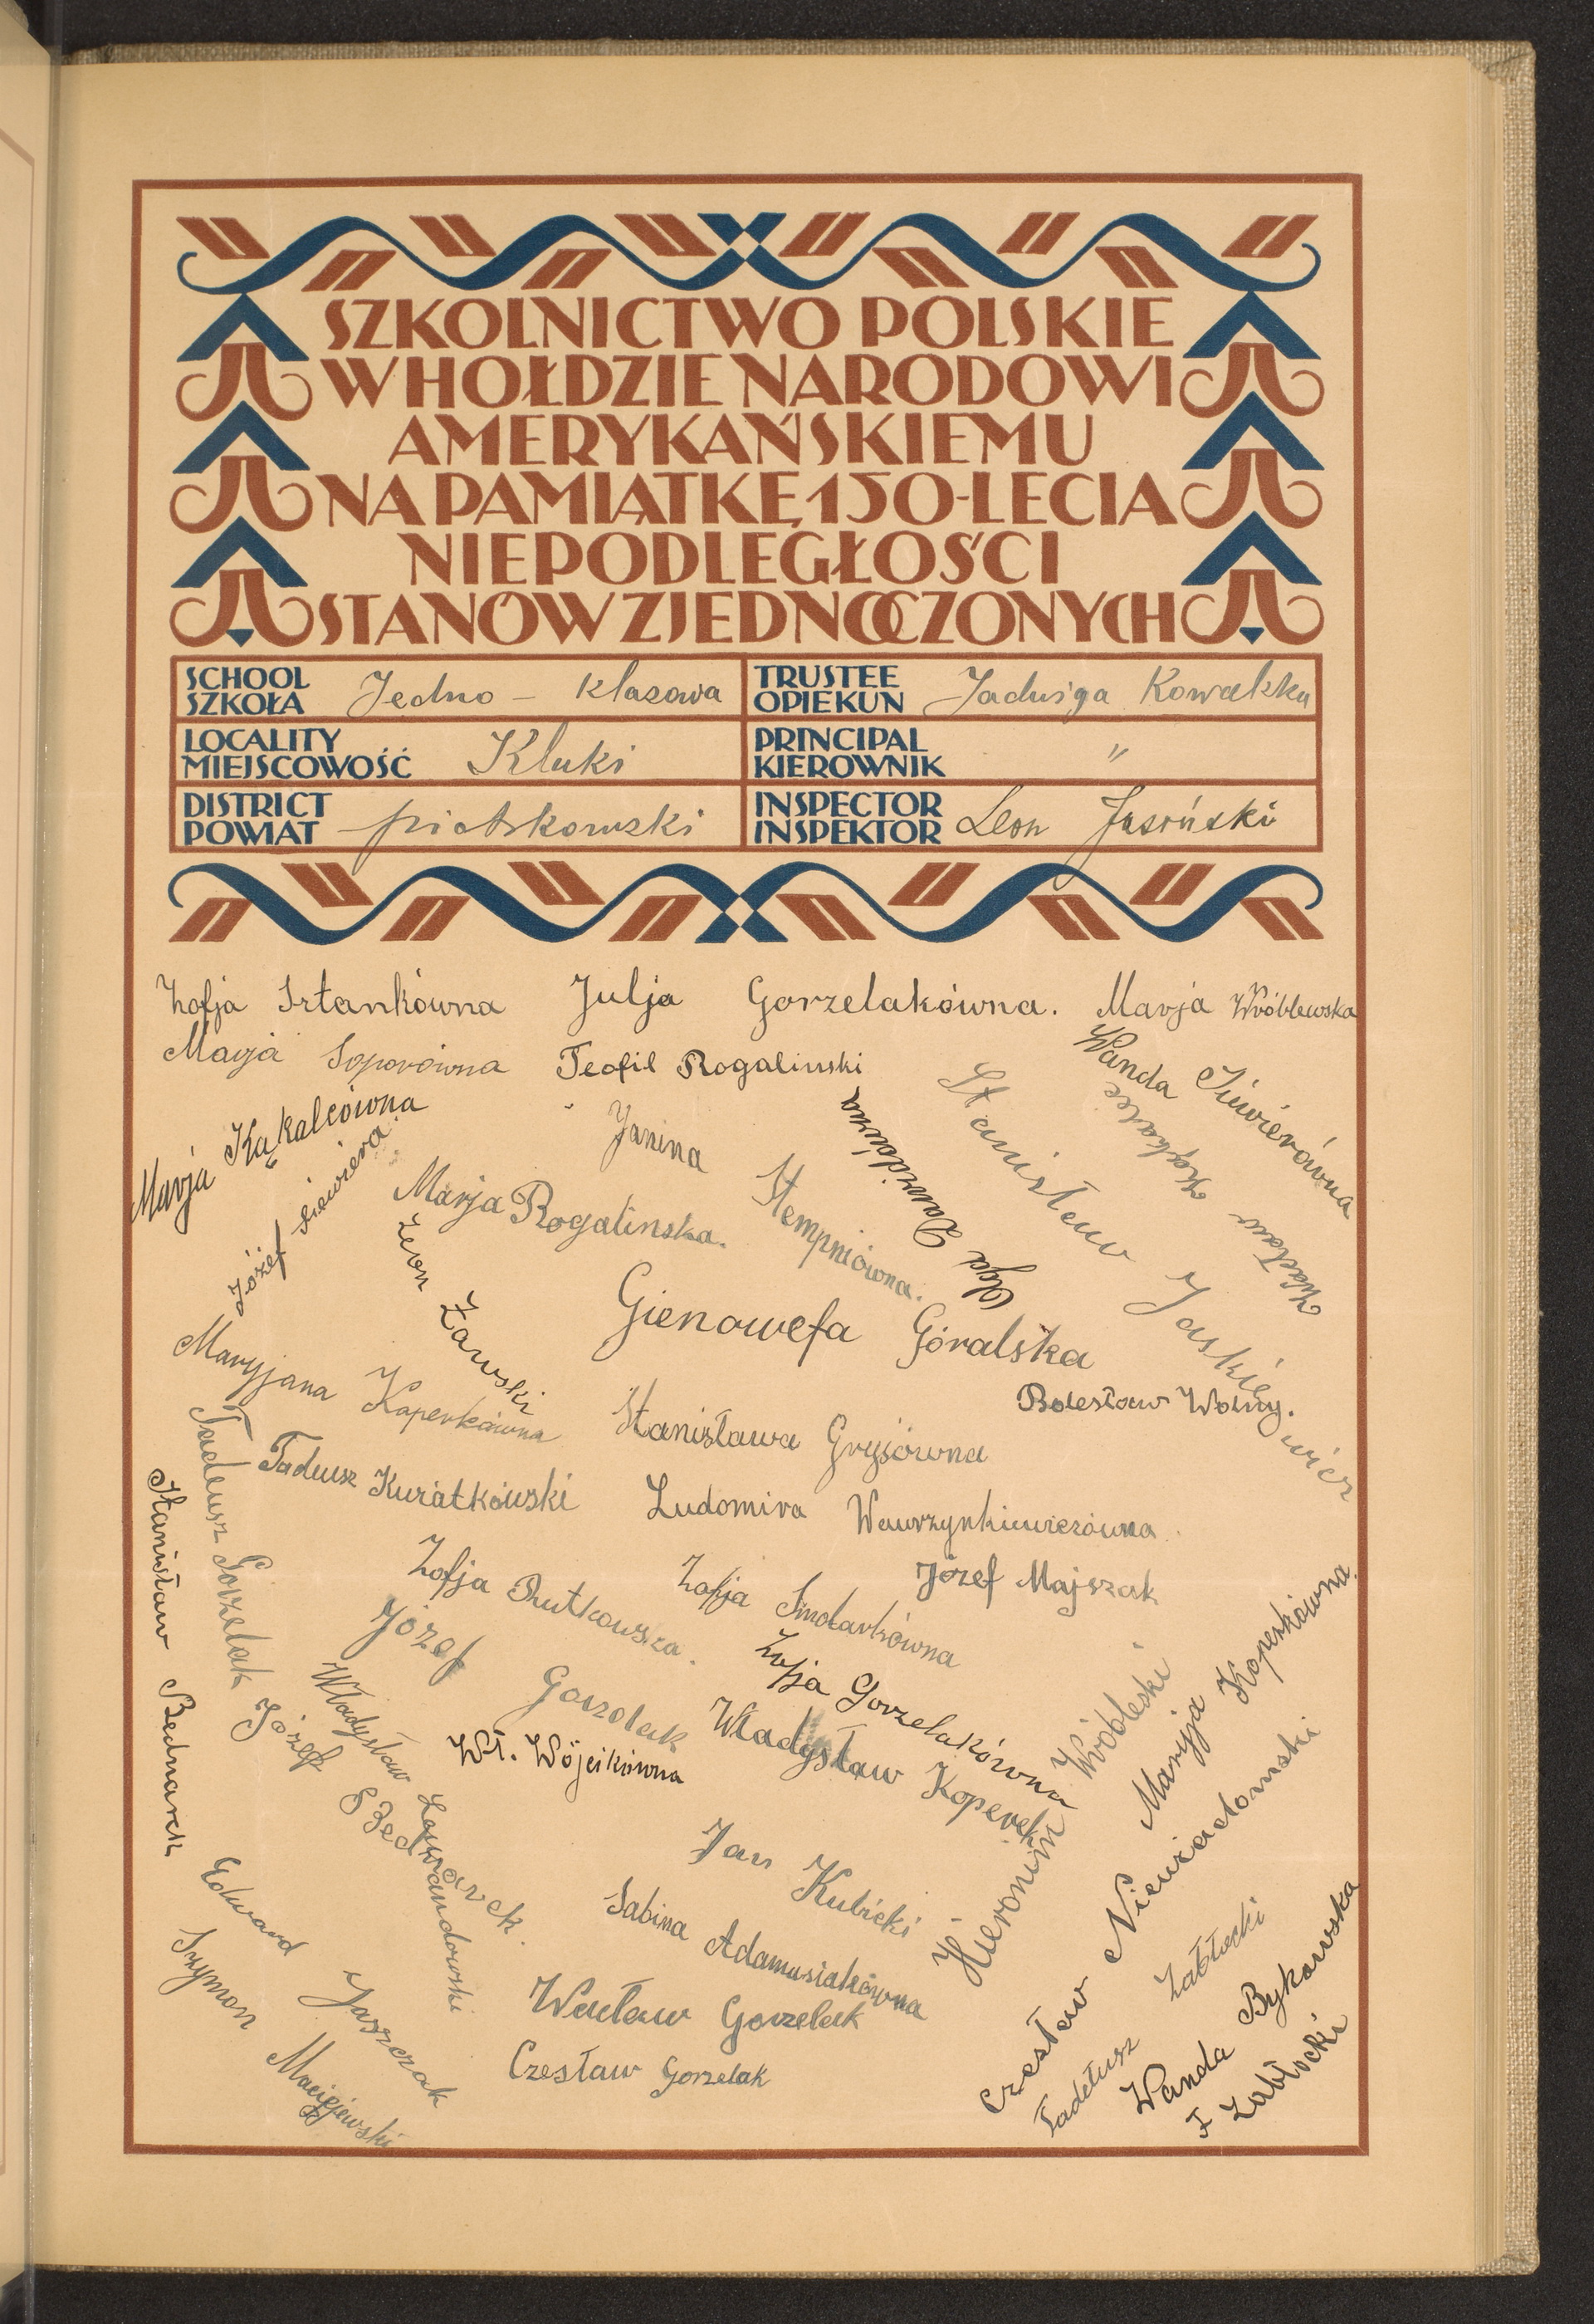 SZKOLNICTWO POLSKIE
W HOŁDZIE NARODOWI
AMERYKAŃSKIEMU
NA PAMIĄTKĘ 150-LECIA
NIEPODLEGŁOŚCI
STANÓW ZJEDNOCZONYCH
SCHOOL
SZKOŁA
Jedno - klasowa
TRUSTEE
OPIEKUN
Jadwiga Kowalska
LOCALITY
MIEJSCOWOŚĆ
Kluki
PRINCIPAL
KIEROWNIK
"
DISTRICT
POWIAT
piotrkowski
INSPECTOR
INSPEKTOR
Leon Jasiński
Zofja Srtankówna
Julja Gorzelakówna.
Marja Wróblewska
Marja Soporówna
Teofil Rogalinski
Wanda Siewierówna
Marja Kąkalcówna
Józef Siewiera.
Marja Rogalinska.
Janina Stempniówna.
Olga Dawidówna
Stanisław Jaskiewicz
Wacław Kąkalec
Zenon Żawski
Gienowefa Góralska
Maryjana Koperkówna
Bolesław Wolny.
Stanisława Gryjówna
Tadeusz Gorzelak
Tadeusz Kuratkowski
Ludomira Wawrzynkiewiczówna.
Stanisław Bednarek
Zofja Rutkowska.
Zofja Smolarkówna
Józef Majszak
Józef Gorzelak
Zofja Gorzelakówna
Władysław Lewandowski
Józef Bednarek.
Wł. Wójcikówna
Władysław Koperek
Hieronim Wróbleski
Maryja Koperkówna.
Jan Kubicki
Edward Jaszczak
Sabina Adamusiakówna
Czesław Niewiadomski
Szymon Maciejewski
Wacław Gorzelak
Tadeusz Zabłocki
Czesław Gorzelak
Wanda Bykowska
F Zabłocki